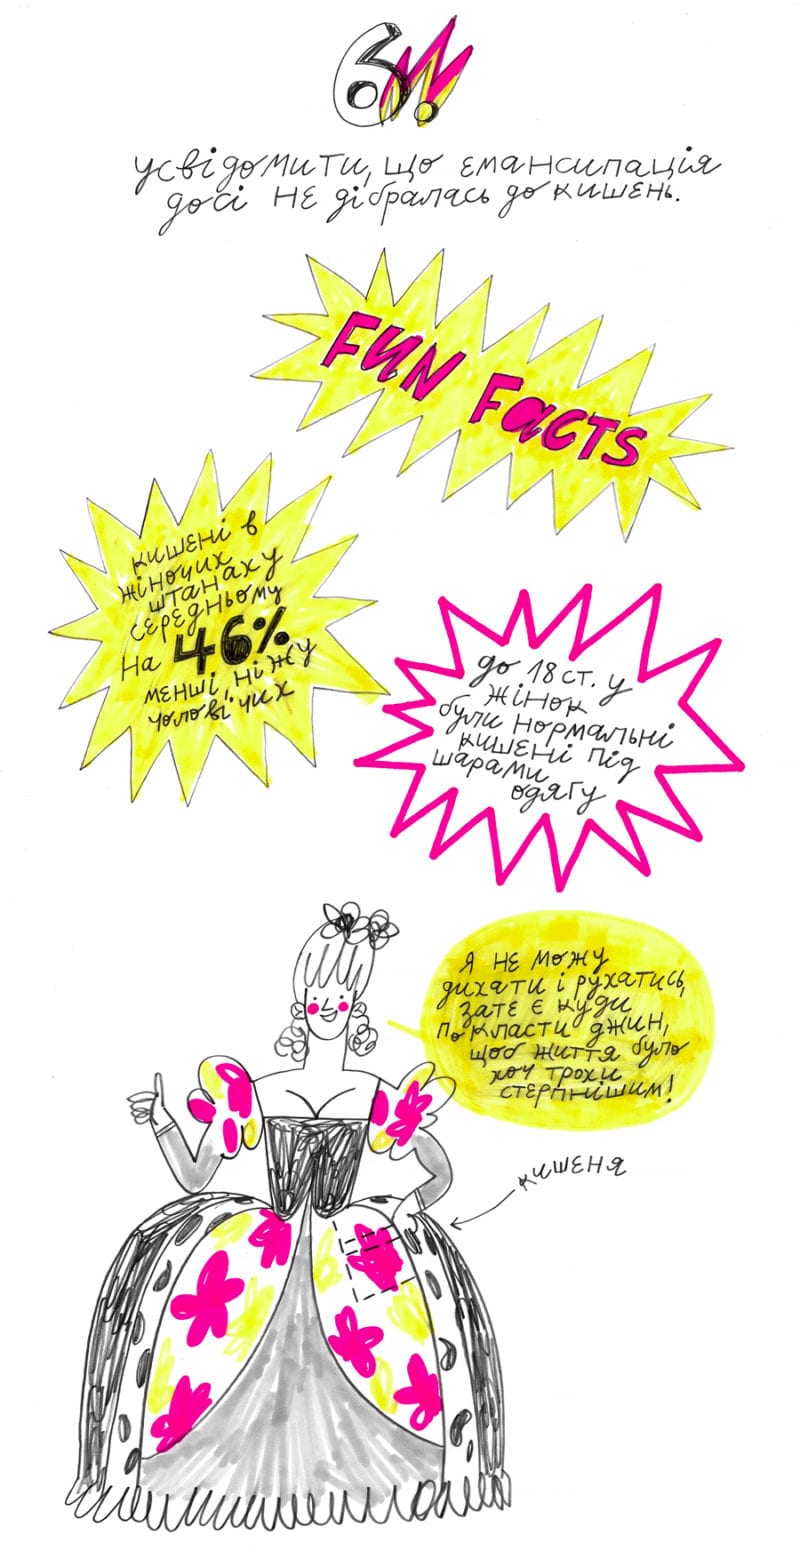 6.
усвідомити, що емансипація
досі не дібралась до кишень.
FUN FACTS
кишені в
жіночих
штанах у
середньому
на 46%
менші, ніж у
чоловічих
до 18 ст. у
жінок
були нормальні
кишені під
шарами
одягу
Я не можу
дихати і рухатись,
зате є куди
покласти джин,
щоб життя було
хоч трохи
стерпнішим!
кишеня